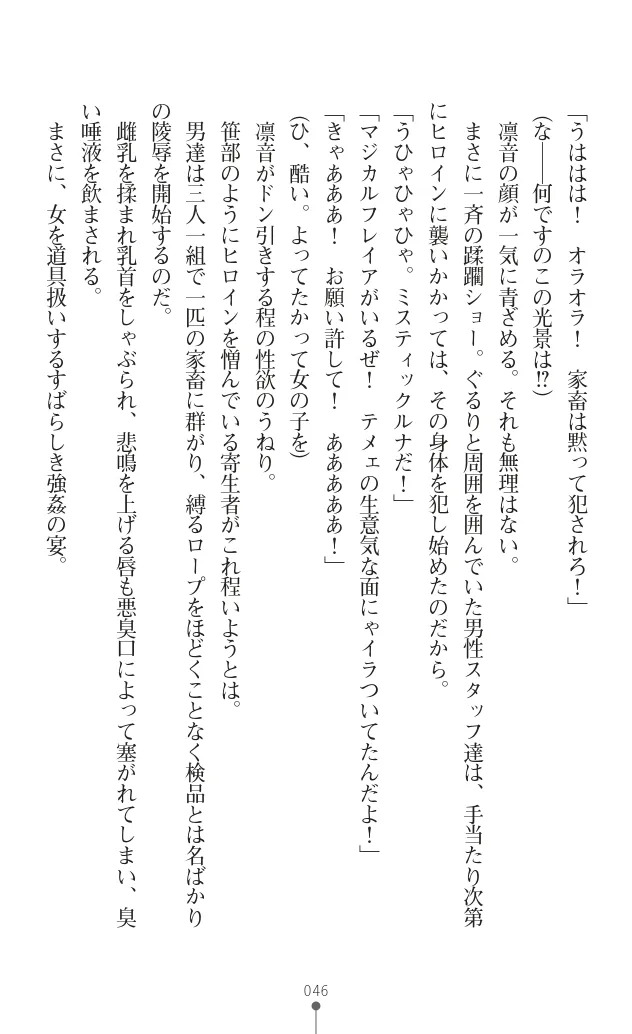 「うははは！　オラオラ！　家畜は黙って犯されろ！」
(な――何ですのこの光景は!?)
　凛音の顔が一気に青ざめる。それも無理はない。
　まさに一斉の蹂躙ショー。ぐるりと周囲を囲んでいた男性スタッフ達は、手当たり次第
にヒロインに襲いかかっては、その身体を犯し始めたのだから。
「うひゃひゃひゃ。ミスティックルナだ！」
「マジカルフレイアがいるぜ！　テメェの生意気な面にゃイラついてたんだよ！」
「きゃあああ！　お願い許して！　あああああ！」
(ひ、酷い。よってたかって女の子を)
　凛音がドン引きする程の性欲のうねり。
　笹部のようにヒロインを憎んでいる寄生者がこれ程いようとは。
　男達は三人一組で一匹の家畜に群がり、縛るロープをほどくことなく検品とは名ばかり
の陵辱を開始するのだ。
　雌乳を揉まれ乳首をしゃぶられ、悲鳴を上げる唇も悪臭口によって塞がれてしまい、臭
い唾液を飲まされる。
　まさに、女を道具扱いするすばらしき強姦の宴。
046